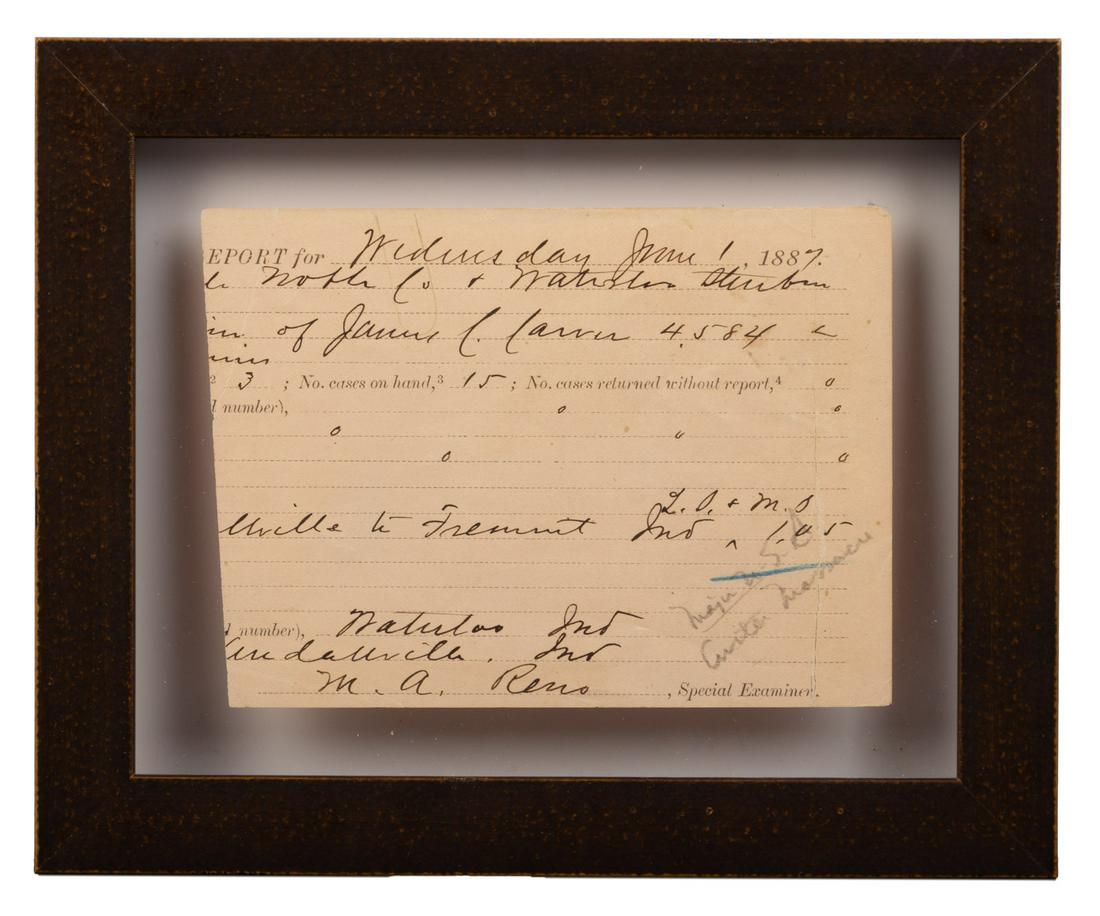 EPORT for Wednesday June 1, 1887.
Noble Co + Waterloo Steuben
of James C. Carver 4,584
2 3 ; No. cases on hand,3 15 ; No. cases returned without report,4 0
d number), 0 0
0 0
0 0
L. O. + M. O
llville to Fremont Ind ^ 1.05
Major U.S.A
Custer Massacre
d number), Waterloo Ind
Kendallville. Ind
M. A. Reno , Special Examiner.